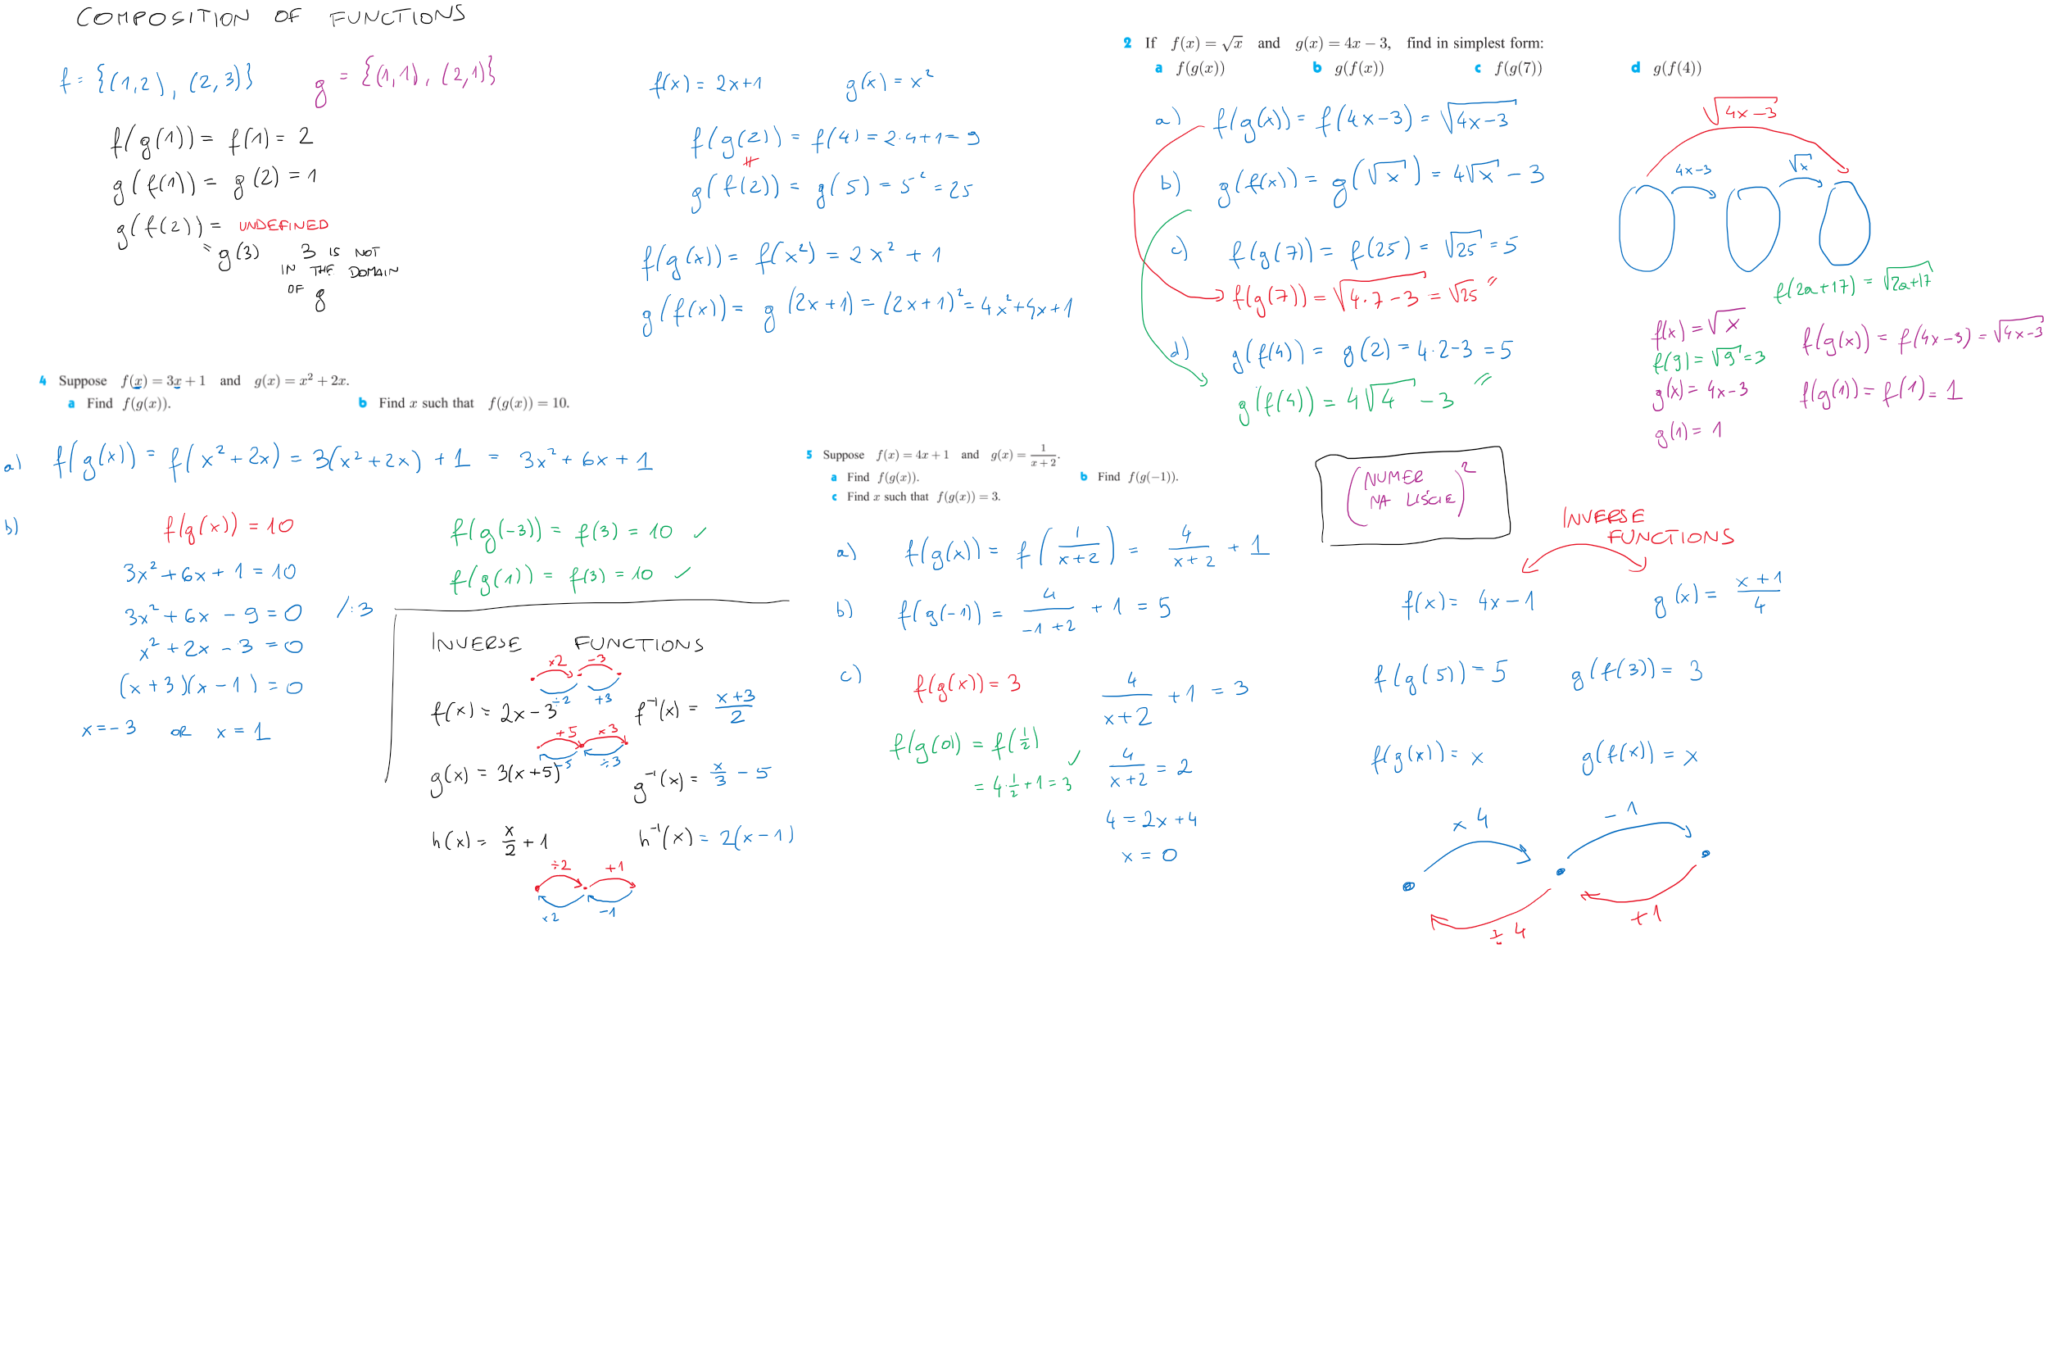 COMPOSITION OF FUNCTIONS
f = {(1,2), (2,3)} g = {(1,1), (2,1)}
f(g(1)) = f(1) = 2
g(f(1)) = g(2) = 1
g(f(2)) = UNDEFINED
" g(3) 3 IS NOT
IN THE DOMAIN
OF g
f(x) = 2x+1 g(x) = x²
f(g(2)) = f(4) = 2·4+1 = 9
≠
g(f(2)) = g(5) = 5² = 25
f(g(x)) = f(x²) = 2x² + 1
g(f(x)) = g(2x+1) = (2x+1)² = 4x²+4x+1
2 If f(x) = √x and g(x) = 4x − 3, find in simplest form:
a f(g(x)) b g(f(x)) c f(g(7)) d g(f(4))
a) f(g(x)) = f(4x−3) = √(4x−3)
b) g(f(x)) = g(√x) = 4√x − 3
c) f(g(7)) = f(25) = √25 = 5
f(g(7)) = √(4·7−3) = √25 "
d) g(f(4)) = g(2) = 4·2−3 = 5
g(f(4)) = 4√4 − 3 "
√(4x−3)
4x−3 √x
f(2a+17) = √(2a+17)
f(x) = √x
f(9) = √9 = 3
g(x) = 4x−3
g(1) = 1
f(g(x)) = f(4x−3) = √(4x−3)
f(g(1)) = f(1) = 1
4 Suppose f(x) = 3x + 1 and g(x) = x² + 2x.
a Find f(g(x)). b Find x such that f(g(x)) = 10.
a) f(g(x)) = f(x²+2x) = 3(x²+2x) + 1 = 3x² + 6x + 1
b) f(g(x)) = 10
3x² + 6x + 1 = 10
3x² + 6x − 9 = 0 /:3
x² + 2x − 3 = 0
(x+3)(x−1) = 0
x = −3 OR x = 1
f(g(−3)) = f(3) = 10 ✓
f(g(1)) = f(3) = 10 ✓
INVERSE FUNCTIONS
×2 −3
÷2 +3
f(x) = 2x − 3 f⁻¹(x) = (x+3)/2
+5 ×3
−5 ÷3
g(x) = 3(x+5) g⁻¹(x) = x/3 − 5
h(x) = x/2 + 1 h⁻¹(x) = 2(x−1)
÷2 +1
×2 −1
5 Suppose f(x) = 4x + 1 and g(x) = 1/(x+2).
a Find f(g(x)). b Find f(g(−1)).
c Find x such that f(g(x)) = 3.
a) f(g(x)) = f(1/(x+2)) = 4/(x+2) + 1
b) f(g(−1)) = 4/(−1+2) + 1 = 5
c) f(g(x)) = 3
4/(x+2) + 1 = 3
4/(x+2) = 2
4 = 2x + 4
x = 0
f(g(0)) = f(1/2) ✓
= 4·1/2 + 1 = 3
(NUMER
NA LIŚCIE)²
INVERSE
FUNCTIONS
f(x) = 4x − 1 g(x) = (x+1)/4
f(g(5)) = 5 g(f(3)) = 3
f(g(x)) = x g(f(x)) = x
×4 −1
÷4 +1